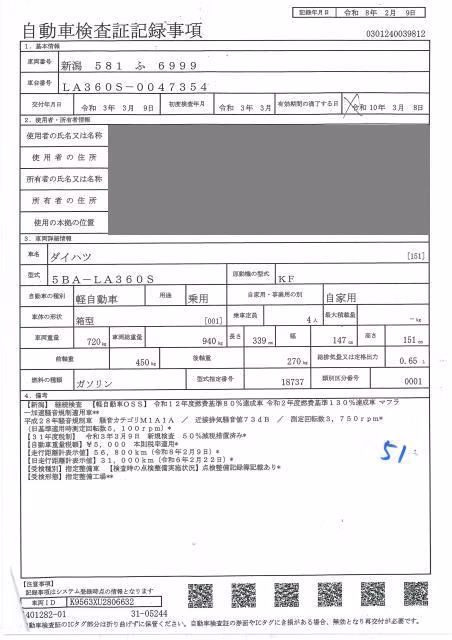 記録年月日 令和 8年 2月 9日
自動車検査証記録事項
0301240039812
1. 基本情報
車両番号 新潟 581 ふ 6999
車台番号 LA360S-0047354
交付年月日 令和 3年 3月 9日 初度検査年月 令和 3年 3月 有効期間の満了する日 令和10年 3月 8日
2. 使用者・所有者情報
使用者の氏名又は名称
使用者の住所
所有者の氏名又は名称
所有者の住所
使用の本拠の位置
3. 車両詳細情報
車名 ダイハツ [151]
型式 5BA-LA360S 原動機の型式 KF
自動車の種別 軽自動車 用途 乗用 自家用・事業用の別 自家用
車体の形状 箱型 [001] 乗車定員 4人 最大積載量 -kg
車両重量 720kg 車両総重量 940kg 長さ 339cm 幅 147cm 高さ 151cm
前軸重 450kg 後軸重 270kg 総排気量又は定格出力 0.65 L
燃料の種類 ガソリン 型式指定番号 18737 類別区分番号 0001
4. 備考
【新潟】 継続検査 【軽自動車OSS】 令和12年度燃費基準80%達成車 令和2年度燃費基準130%達成車 マフラ
ー加速騒音規制適用車**
平成28年騒音規制車 騒音カテゴリM1A1A / 近接排気騒音値73dB / 測定回転数3,750rpm*
(旧基準適用時測定回転数5,100rpm)*
【31年度税制】 令和3年3月9日 新規検査 50%減税措置済み*
【自動車重量税額】 ¥5,000 本則税率適用*
【走行距離計表示値】56,800km(令和8年2月9日)*
【旧走行距離計表示値】31,000km(令和6年2月22日)*
【受検種別】指定整備車 【検査時の点検整備実施状況】点検整備記録簿記載あり*
【受検形態】指定整備工場**
51
【注意事項】
記録事項はシステム登録時点の情報となります
車両ID K9563XU2806632
401282-01 31-05244
自動車検査証のICタグ部分は折り曲げずに保管ください。自動車検査証の券面やICタグに含損がある場合、無効となり再交付が必要です。